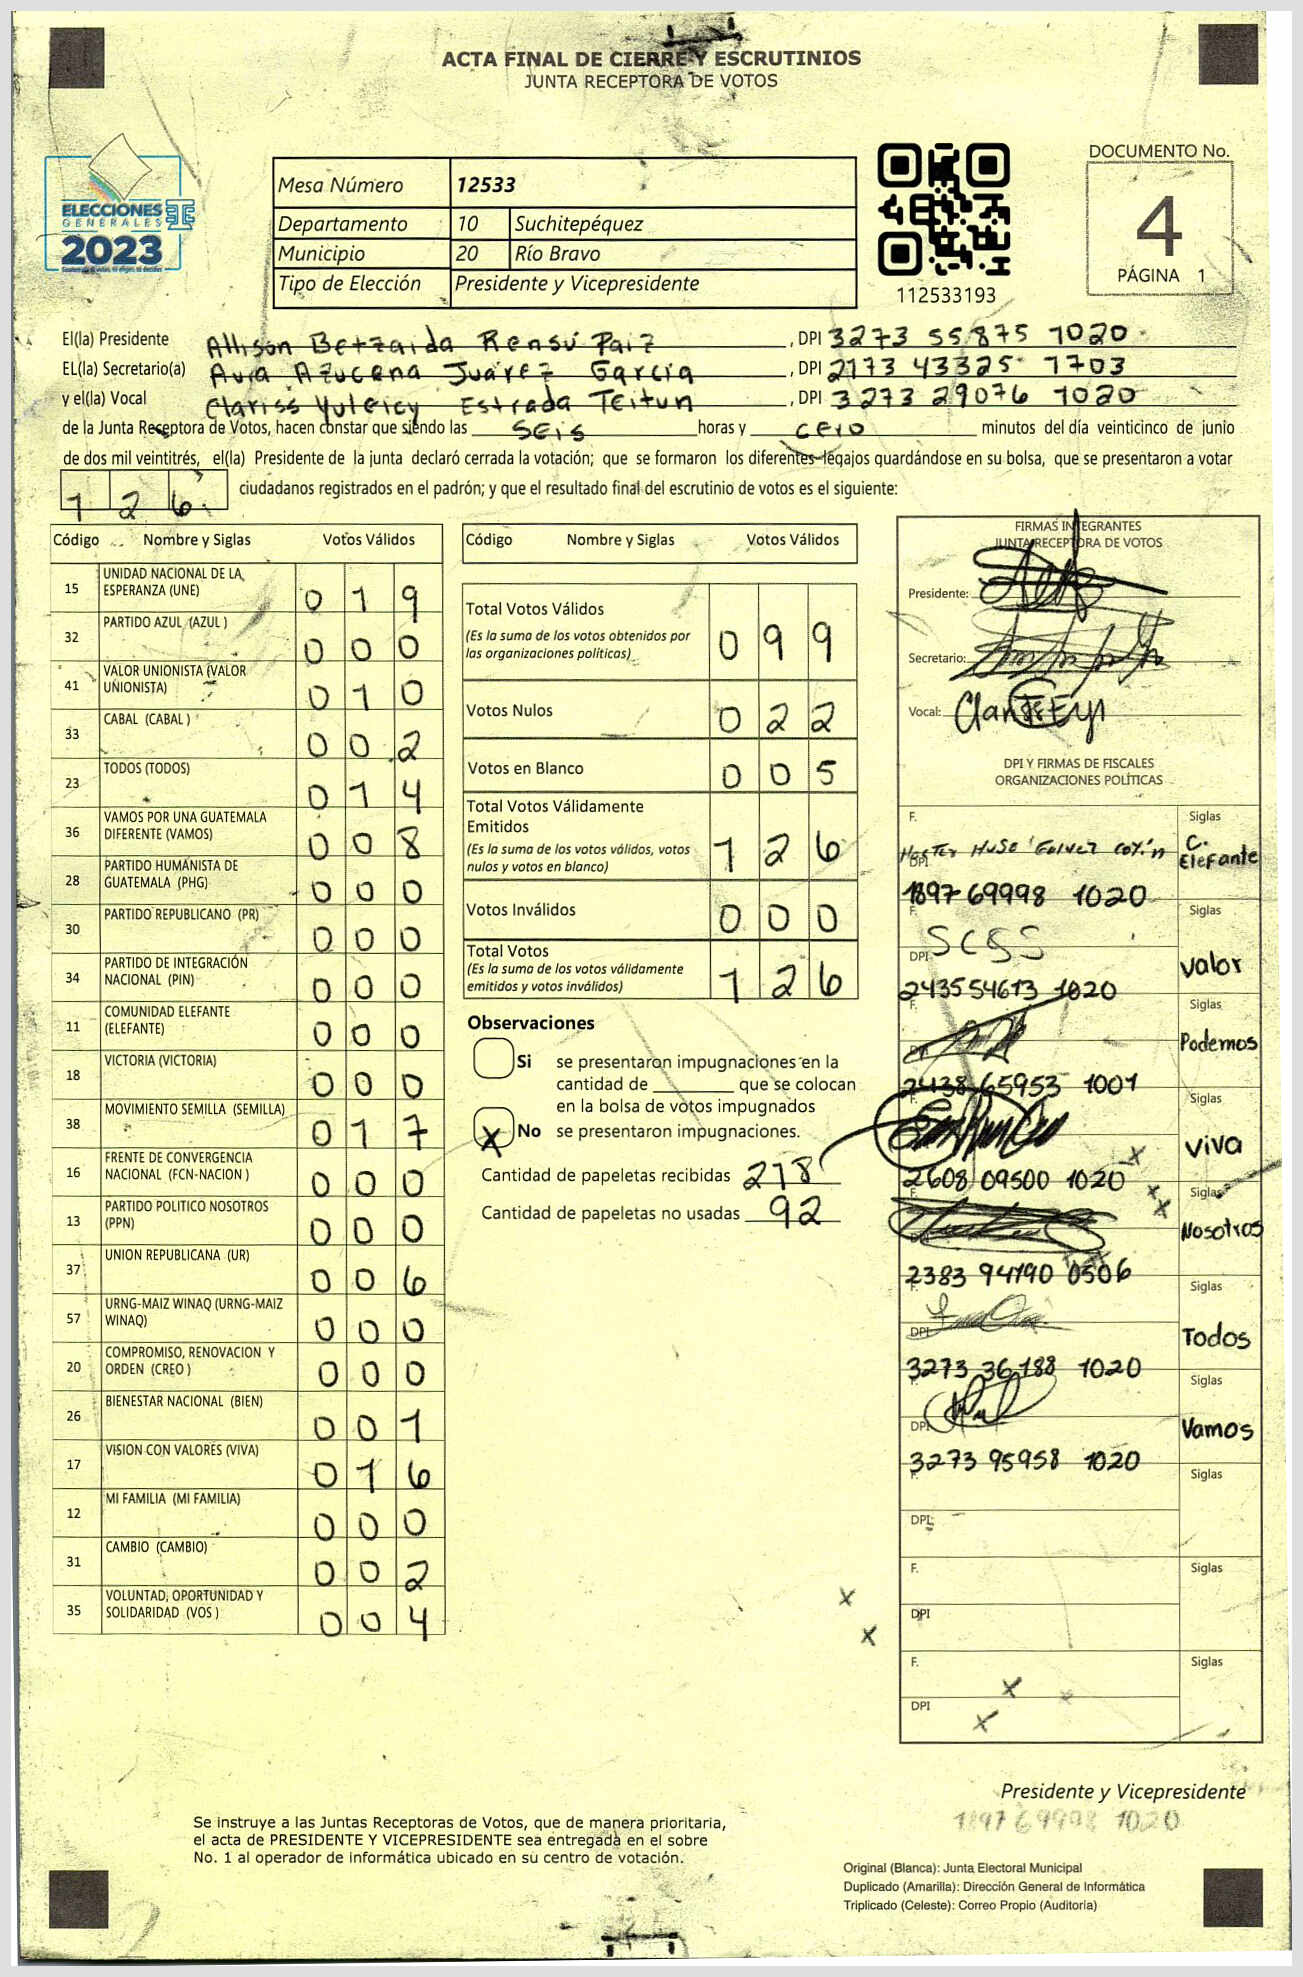 ACTA FINAL DE CIERRE Y ESCRUTINIOS
JUNTA RECEPTORA DE VOTOS
ELECCIONES
GENERALES
2023
Mesa Número 12533
Departamento 10 Suchitepéquez
Municipio 20 Río Bravo
Tipo de Elección Presidente y Vicepresidente
112533193
DOCUMENTO No.
4
PÁGINA 1
El(la) Presidente Allison Betzaida Rensú Paiz, DPI 3273 55875 1020
EL(la) Secretario(a) Aura Azucena Juarez García, DPI 2173 43325 1703
y el(la) Vocal Clariss Yuleicy Estrada Teitun, DPI 3273 29076 1020
de la Junta Receptora de Votos, hacen constar que siendo las seis horas y cero minutos del día veinticinco de junio
de dos mil veintitrés, el(la) Presidente de la junta declaró cerrada la votación; que se formaron los diferentes legajos guardándose en su bolsa, que se presentaron a votar
126 ciudadanos registrados en el padrón; y que el resultado final del escrutinio de votos es el siguiente:
Código Nombre y Siglas Votos Válidos
15 UNIDAD NACIONAL DE LA ESPERANZA (UNE) 019
32 PARTIDO AZUL (AZUL ) 000
41 VALOR UNIONISTA (VALOR UNIONISTA) 010
33 CABAL (CABAL ) 002
23 TODOS (TODOS) 014
36 VAMOS POR UNA GUATEMALA DIFERENTE (VAMOS) 008
28 PARTIDO HUMANISTA DE GUATEMALA (PHG) 000
30 PARTIDO REPUBLICANO (PR) 000
34 PARTIDO DE INTEGRACIÓN NACIONAL (PIN) 000
11 COMUNIDAD ELEFANTE (ELEFANTE) 000
18 VICTORIA (VICTORIA) 000
38 MOVIMIENTO SEMILLA (SEMILLA) 017
16 FRENTE DE CONVERGENCIA NACIONAL (FCN-NACION ) 000
13 PARTIDO POLITICO NOSOTROS (PPN) 000
37 UNION REPUBLICANA (UR) 006
57 URNG-MAIZ WINAQ (URNG-MAIZ WINAQ) 000
20 COMPROMISO, RENOVACION Y ORDEN (CREO ) 000
26 BIENESTAR NACIONAL (BIEN) 001
17 VISION CON VALORES (VIVA) 016
12 MI FAMILIA (MI FAMILIA) 000
31 CAMBIO (CAMBIO) 002
35 VOLUNTAD, OPORTUNIDAD Y SOLIDARIDAD (VOS ) 004
Código Nombre y Siglas Votos Válidos
Total Votos Válidos 099
(Es la suma de los votos obtenidos por
las organizaciones políticas)
Votos Nulos 022
Votos en Blanco 005
Total Votos Válidamente
Emitidos 126
(Es la suma de los votos válidos, votos
nulos y votos en blanco)
Votos Inválidos 000
Total Votos 126
(Es la suma de los votos válidamente
emitidos y votos inválidos)
Observaciones
Si se presentaron impugnaciones en la
cantidad de ________ que se colocan
en la bolsa de votos impugnados
X No se presentaron impugnaciones.
Cantidad de papeletas recibidas 218
Cantidad de papeletas no usadas 92
FIRMAS INTEGRANTES
JUNTA RECEPTORA DE VOTOS
Presidente:
Secretario:
Vocal:
DPI Y FIRMAS DE FISCALES
ORGANIZACIONES POLÍTICAS
F. Siglas
C. Elefante
DPI 1897 69998 1020
F. Siglas
Valor
DPI 2435 54613 1020
F. Siglas
Podemos
DPI 2438 65953 1001
F. Siglas
Viva
2608 09500 1020
F. Siglas
Nosotros
2383 94190 0506
F. Siglas
Todos
DPI 3273 36188 1020
F. Siglas
Vamos
DPI 3273 95958 1020
F. Siglas
DPI
F. Siglas
DPI
F. Siglas
DPI
Presidente y Vicepresidente
1897 69998 1020
Se instruye a las Juntas Receptoras de Votos, que de manera prioritaria,
el acta de PRESIDENTE Y VICEPRESIDENTE sea entregada en el sobre
No. 1 al operador de informática ubicado en su centro de votación.
Original (Blanca): Junta Electoral Municipal
Duplicado (Amarilla): Dirección General de Informática
Triplicado (Celeste): Correo Propio (Auditoría)